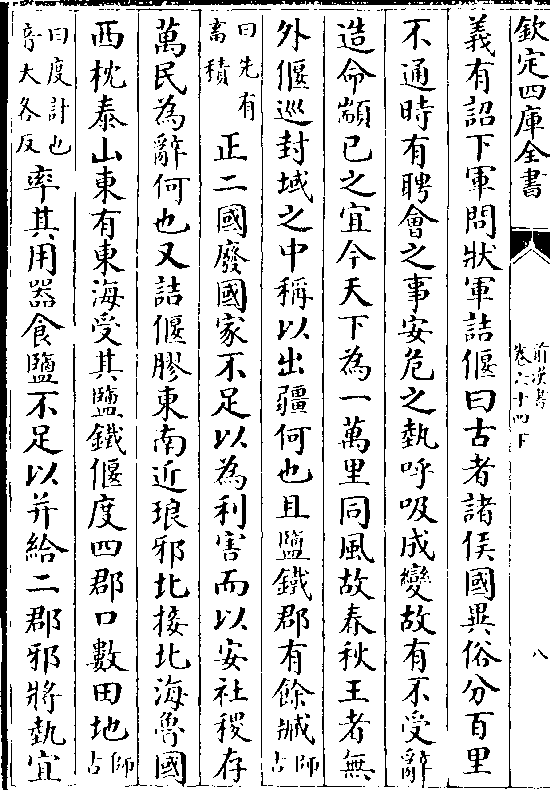 欽定四庫全書
前漢書
卷六十四下
八
義有詔下軍問狀軍詰偃曰古者諸侯國異俗分百里
不通時有聘會之事安危之埶呼吸成變故有不受辭
造命顓已之宜今天下為一萬里同風故春秋王者無
外偃巡封域之中稱以出疆何也且鹽鐵郡有餘臧師古
曰先有畜積正二國廢國家不足以為利害而以安社稷存
萬民為辭何也又詰偃膠東南近琅邪北接北海魯國
西枕泰山東有東海受其鹽鐵偃度四郡口數田地師古
曰度計也音大各反率其用器食鹽不足以并給二郡邪將埶宜